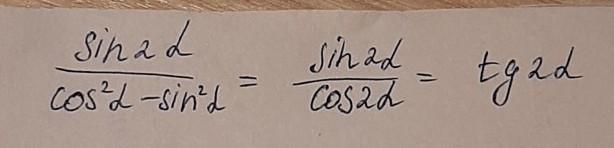 sin2α / cos²α - sin²α = sin2α / cos2α = tg2α